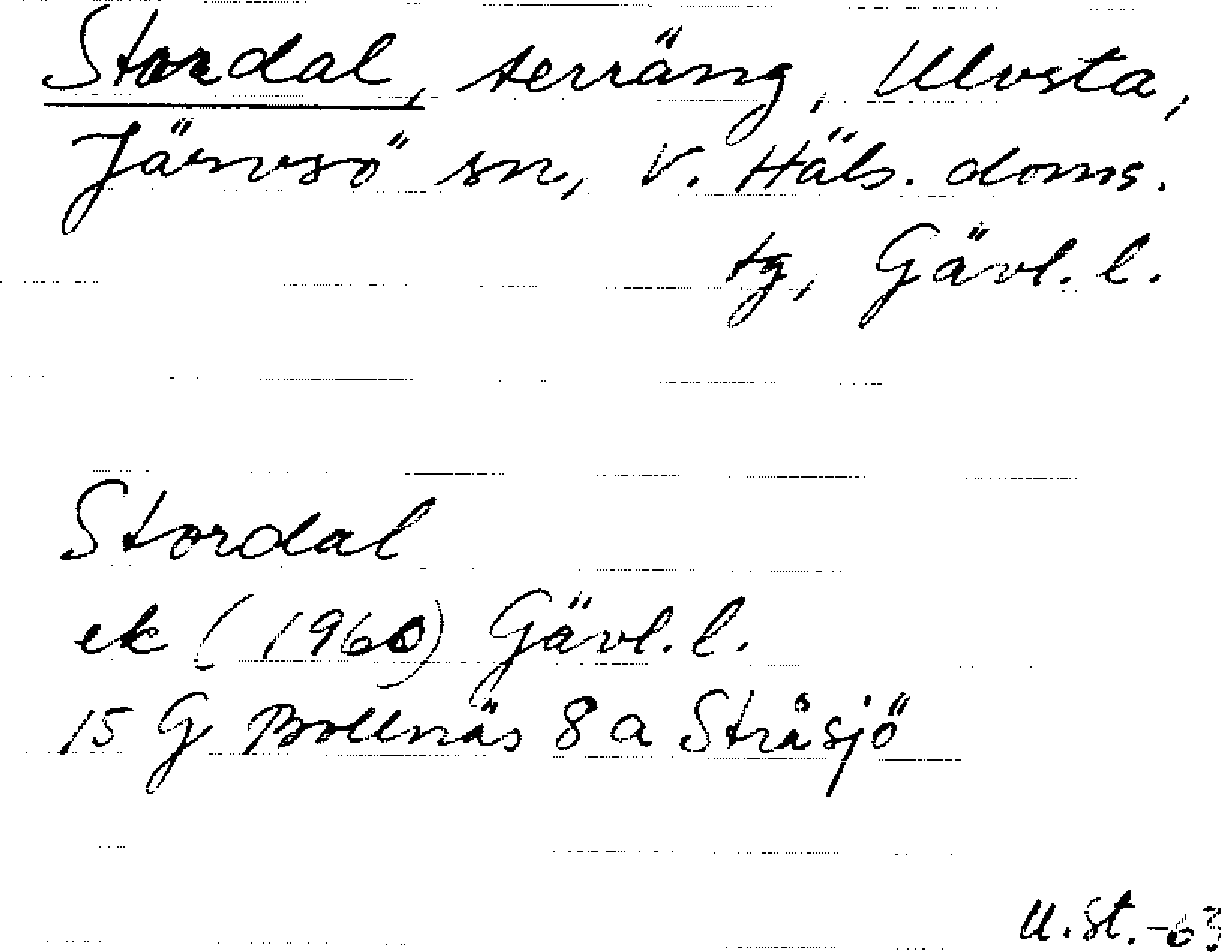 Stordal, terräng, Ulvsta,
Järvsö sn, V. Häls. doms.
tg, Gävl. l.
Stordal
ek (1960) Gävl. l.
15 G Bollnäs 8 a Stråsjö
U. St. -63